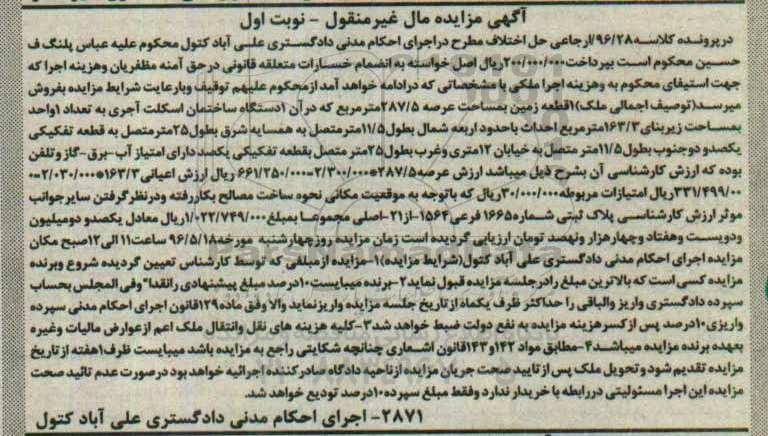 آگهی مزایده مال غیرمنقول - نوبت اول
درپرونده کلاسه ۹۶/۲۸/ارجاعی حل اختلاف مطرح دراجرای احکام مدنی دادگستری علی آباد کتول محکوم علیه عباس پلنگ ف
حسین محکوم است بپرداخت۲۰۰/۰۰۰/۰۰۰ریال اصل خواسته به انضمام خسارات متعلقه قانونی درحق آمنه مظفریان وهزینه اجرا که
جهت استیفای محکوم به وهزینه اجرا ملکی با مشخصاتی که درادامه خواهد آمد ازمحکوم علیهم توقیف وبارعایت شرایط مزایده بفروش
میرسد(توصیف اجمالی ملک)۱قطعه زمین بمساحت عرصه ۲۸۷/۵مترمربع که درآن ۱دستگاه ساختمان اسکلت آجری به تعداد ۱واحد
بمساحت زیربنای۱۶۳/۳مترمربع احداث باحدود اربعه شمال بطول۱۱/۵مترمتصل به همسایه شرق بطول۲۵مترمتصل به قطعه تفکیکی
یکصدو دوجنوب بطول۱۱/۵متر متصل به خیابان ۱۲متری وغرب بطول۲۵متر متصل بقطعه تفکیکی یکصد دارای امتیاز آب-برق-گاز وتلفن
بوده که ارزش کارشناسی آن بشرح ذیل میباشد ارزش عرصه۲۸۷/۵*۲/۳۰۰/۰۰۰=۶۶۱/۲۵۰/۰۰۰ ریال ارزش اعیانی۱۶۳/۳*۲/۰۳۰/۰۰۰=
۳۳۱/۴۹۹/۰۰۰ریال امتیازات مربوطه۳۰/۰۰۰/۰۰۰ریال که باتوجه به موقعیت مکانی نحوه ساخت مصالح بکاررفته ودرنظرگرفتن سایرجوانب
موثر ارزش کارشناسی پلاک ثبتی شماره۱۶۶۵ فرعی۱۵۶۴-از۲۱-اصلی مجموعا بمبلغ۱/۰۲۲/۷۴۹/۰۰۰ریال معادل یکصدو دومیلیون
ودویست وهفتاد وچهارهزار ونهصد تومان ارزیابی گردیده است زمان مزایده روزچهارشنبه مورخه۹۶/۵/۱۸ ساعت۱۱الی۱۲صبح مکان
مزایده اجرای احکام مدنی دادگستری علی آباد کتول(شرایط مزایده)۱-مزایده ازمبلغی که توسط کارشناس تعیین گردیده شروع وبرنده
مزایده کسی است که بالاترین مبلغ رادرجلسه مزایده قبول نماید۲-برنده میبایست۱۰درصد مبلغ پیشنهادی رانقدا"وفی المجلس بحساب
سپرده دادگستری واریز والباقی را حداکثر ظرف یکماه ازتاریخ جلسه مزایده واریزنماید والا وفق ماده۱۲۹قانون اجرای احکام مدنی سپرده
واریزی۱۰درصد پس ازکسرهزینه مزایده به نفع دولت ضبط خواهد شد۳-کلیه هزینه های نقل وانتقال ملک اعم ازعوارض مالیات وغیره
بعهده برنده مزایده میباشد۴-مطابق مواد ۱۴۲و۱۴۳قانون اشعاری چنانچه شکایتی راجع به مزایده باشد میبایست ظرف۱هفته ازتاریخ
مزایده تقدیم شود وتحویل ملک پس ازتایید صحت جریان مزایده ازناحیه دادگاه صادرکننده اجرائیه خواهد بود درصورت عدم تائید صحت
مزایده این اجرا مسئولیتی دررابطه با خریدار ندارد وفقط مبلغ سپرده۱۰درصد تودیع خواهد شد.
۲۸۷۱- اجرای احکام مدنی دادگستری علی آباد کتول